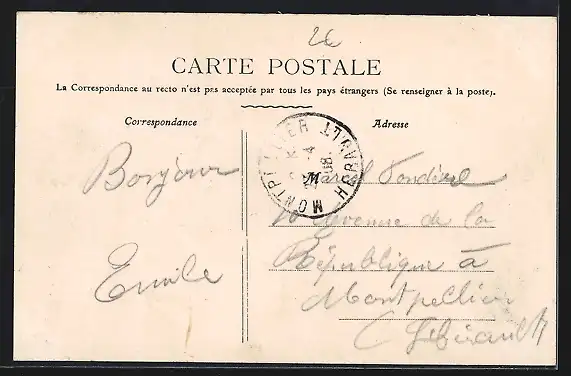 2€
CARTE POSTALE
La Correspondance au recto n'est pas acceptée par tous les pays étrangers (Se renseigner à la poste).
Correspondance
Adresse
MONTPELLIER HERAULT
08
Bonjour
Emile
M
Marcel
Avenue de la
République à
Montpellier
(Hérault)